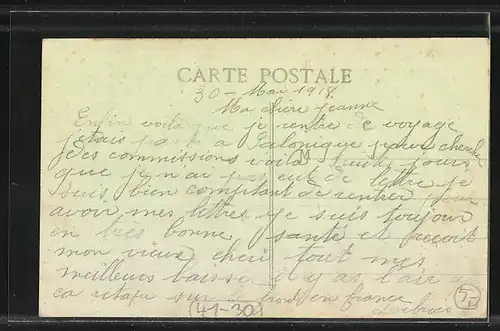 CARTE POSTALE
30 - Mai 1918
Ma chère jeanne
Enfin voila que je rentre de voyage
jetais a Salonique pour cherche
des commissions voila huit jours
que je n'ai pas eut de lettre je
suis bien comptant de rentrer pour
avoir mes lettres je suis toujour
en tres bonne santé et recoit
mon vieux cheri tout mes
meilleurs baisse il y as l'air
ca retape sur front en france
(41-30)